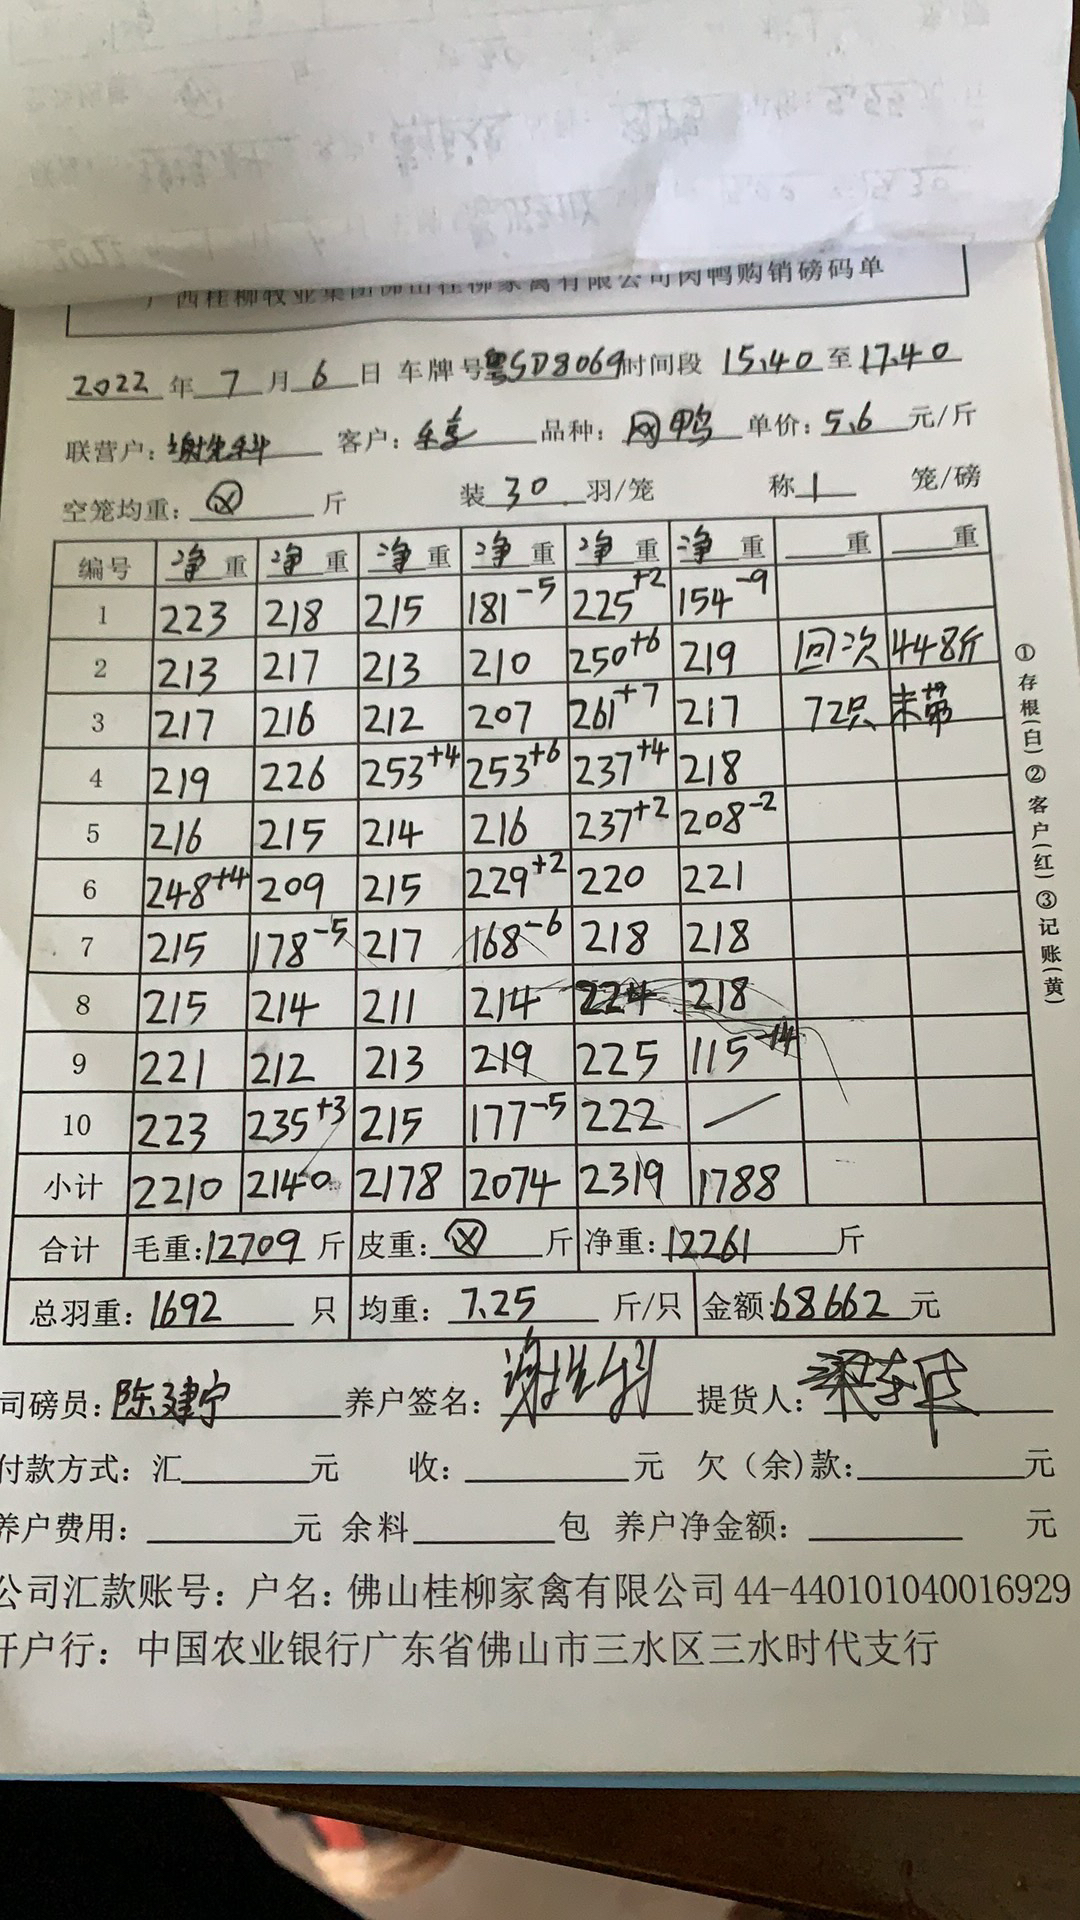 广西桂柳牧业集团佛山桂柳家禽有限公司肉鸭购销磅码单
2022年7月6日 车牌号粤SD8069时间段 15.40至17.40
联营户: 客户: 品种: 网鸭 单价: 5.6 元/斤
空笼均重: 斤 装30羽/笼 称1 笼/磅
编号 净重 净重 净重 净重 净重 净重 重 重
1 223 218 215 181-5 225+2 154-9
2 213 217 213 210 250+6 219 回次 448斤
3 217 216 212 207 261+7 217 72只
4 219 226 253+4 253+6 237+4 218
5 216 215 214 216 237+2 208-2
6 248+4 209 215 229+2 220 221
7 215 178-5 217 168-6 218 218
8 215 214 211 214 224 218
9 221 212 213 219 225 115-14
10 223 235+3 215 177-5 222 /
小计 2210 2140 2178 2074 2319 1788
合计 毛重:12709斤 皮重: 斤 净重:12261斤
总羽重:1692只 均重:7.25斤/只 金额:68662元
司磅员:陈建宁 养户签名: 提货人:
付款方式: 汇 元 收: 元 欠(余)款: 元
养户费用: 元 余料 包 养户净金额: 元
公司汇款账号: 户名: 佛山桂柳家禽有限公司 44-440101040016929
开户行: 中国农业银行广东省佛山市三水区三水时代支行
①存根(白)②客户(红)③记账(黄)